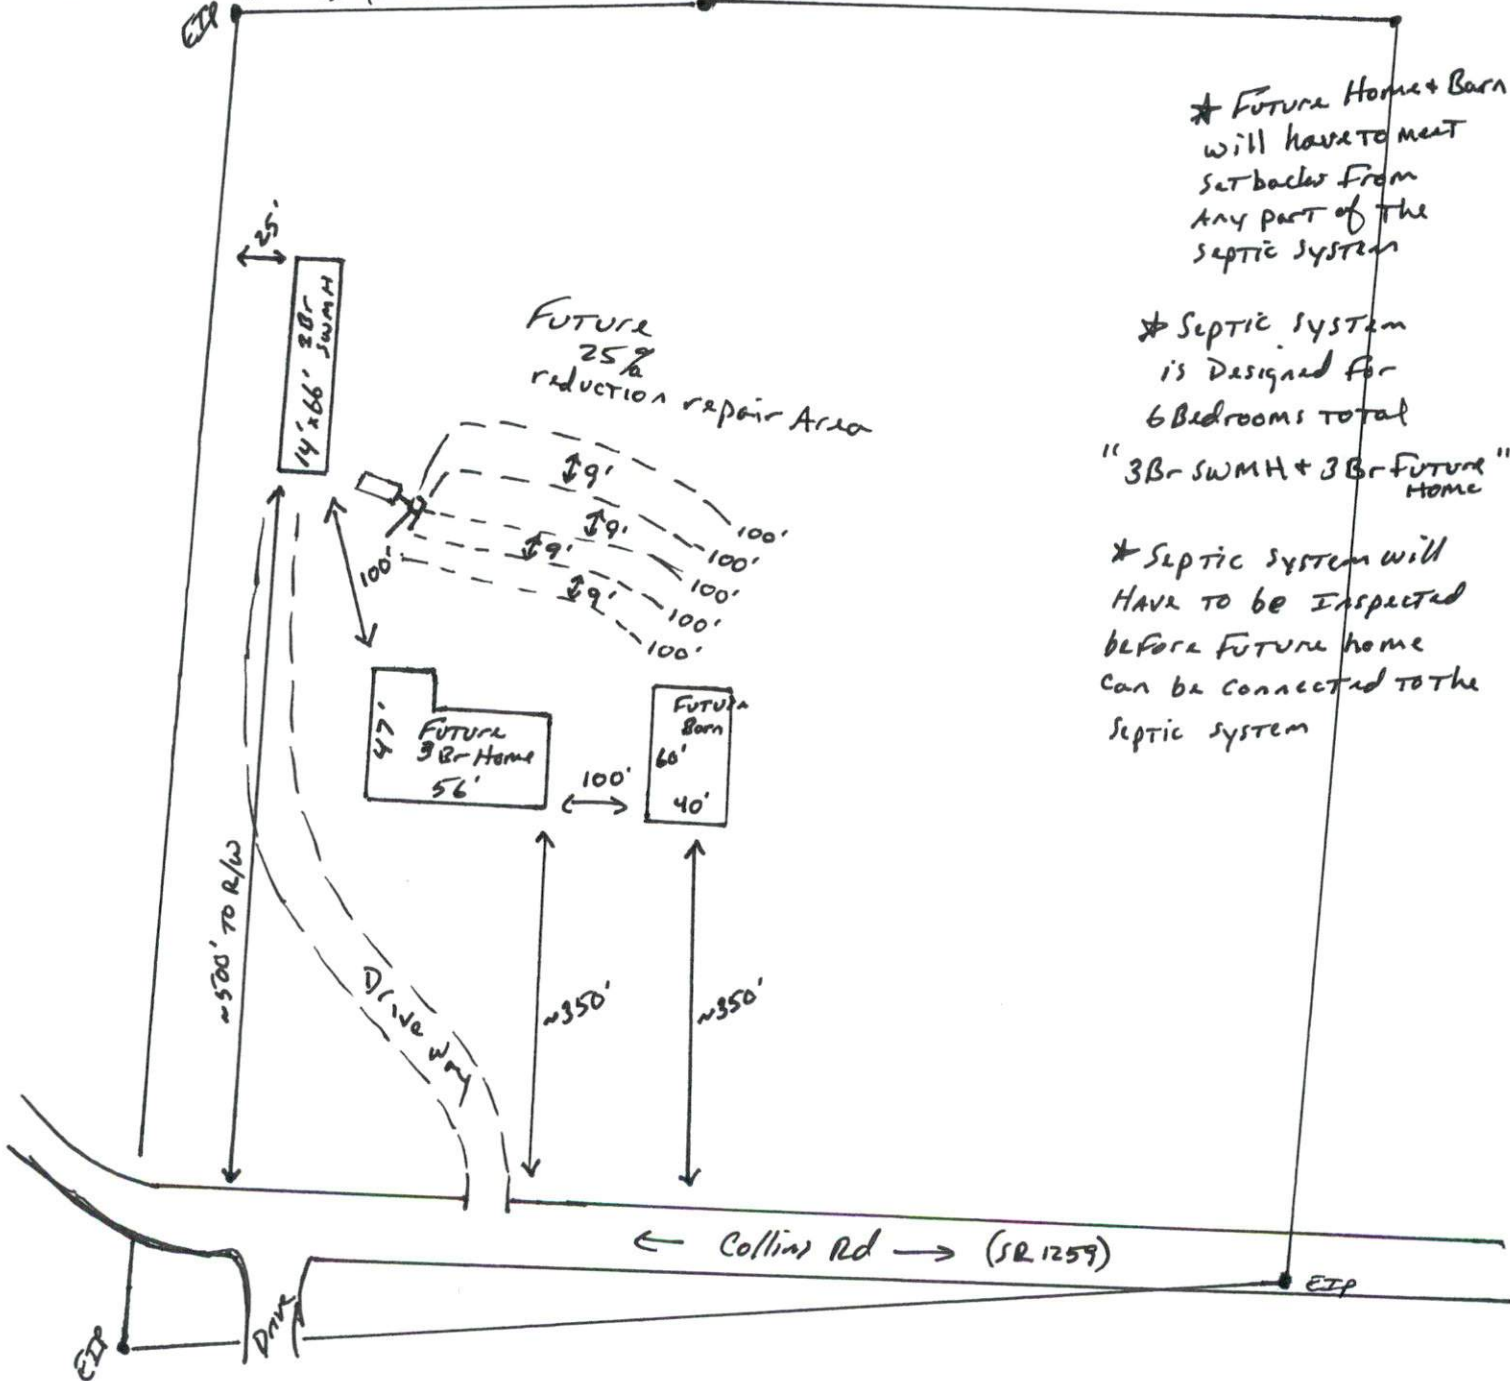 EIP
25'
14' x 66' 3Br
SWMH
Future
25%
reduction repair Area
9'
9'
9'
9'
100'
100'
100'
100'
100'
100'
47'
Future
3 Br Home
56'
100'
Future
Barn
60'
40'
~500' TO R/W
Drive Way
~350'
~350'
← Collins Rd → (SR 1259)
EIP
Drive
EIP
* Future Home + Barn
will have to meet
setbacks from
Any part of the
septic system
* Septic system
is Designed for
6 Bedrooms total
"3Br SWMH + 3 Br Future"
Home
* Septic system will
HAVE TO be Inspected
before Future home
can be connected to the
septic system